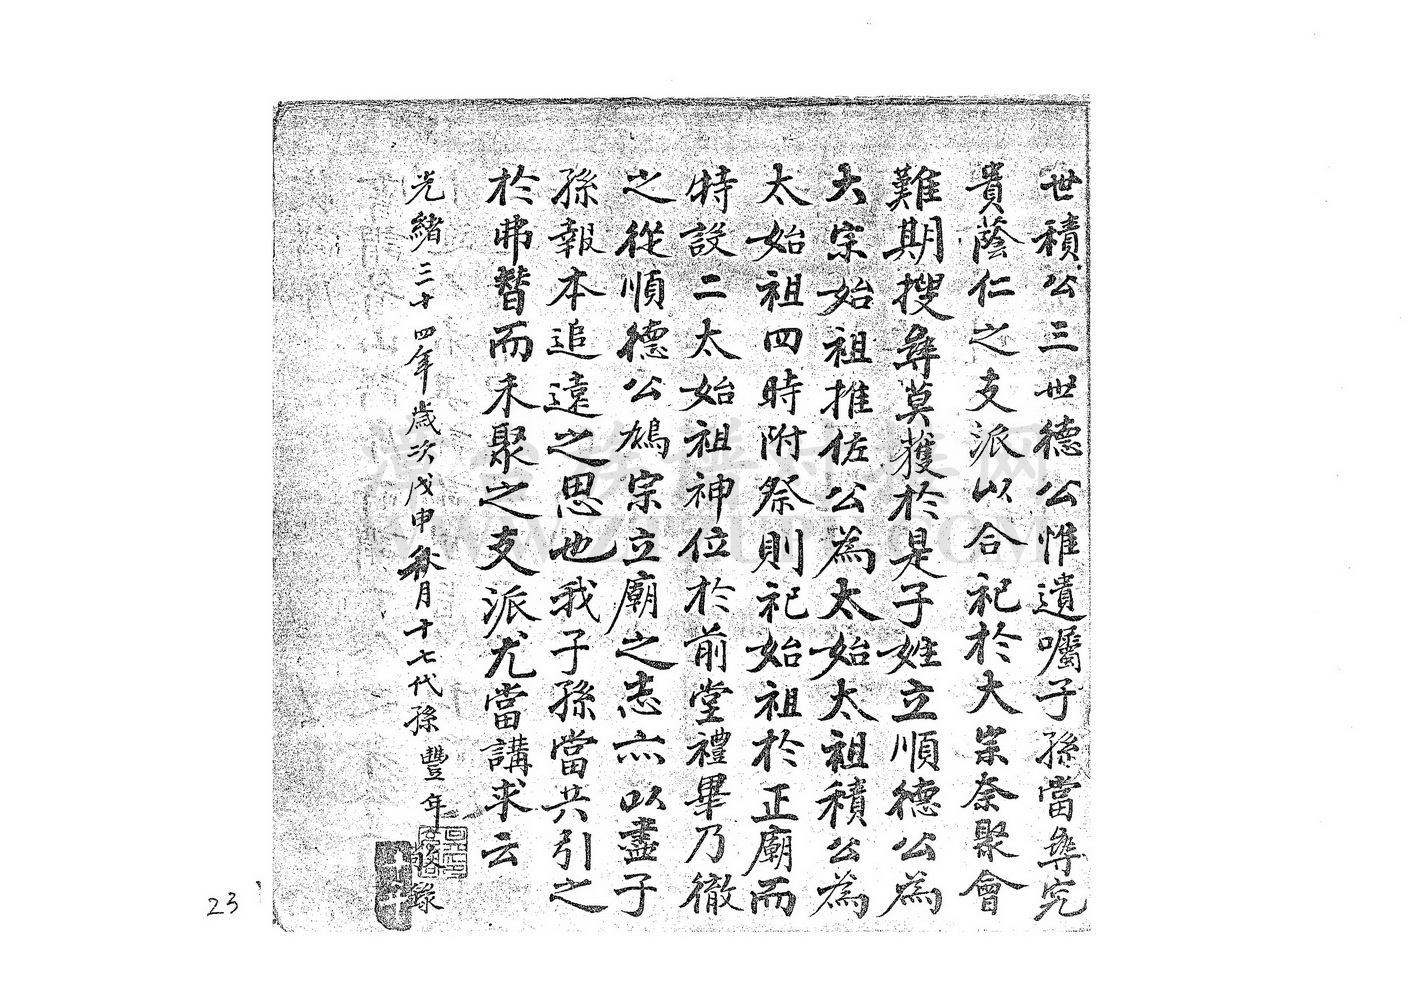 世積公三世德公惟遺囑子孫當尋究
貴蔭仁之支派以合祀於大宗奈聚會
難期搜尋莫獲於是子姓立順德公為
大宗始祖推佐公為太始太祖積公為
太始祖四時附祭則祀始祖於正廟而
特設二太始祖神位於前堂禮畢乃徹
之從順德公鳩宗立廟之志亦以盡子
孫報本追遠之思也我子孫當共引之
於弗替而未聚之支派尤當講求云
光緒三十四年歲次戊申秋月十七代孫豐年 錄
23